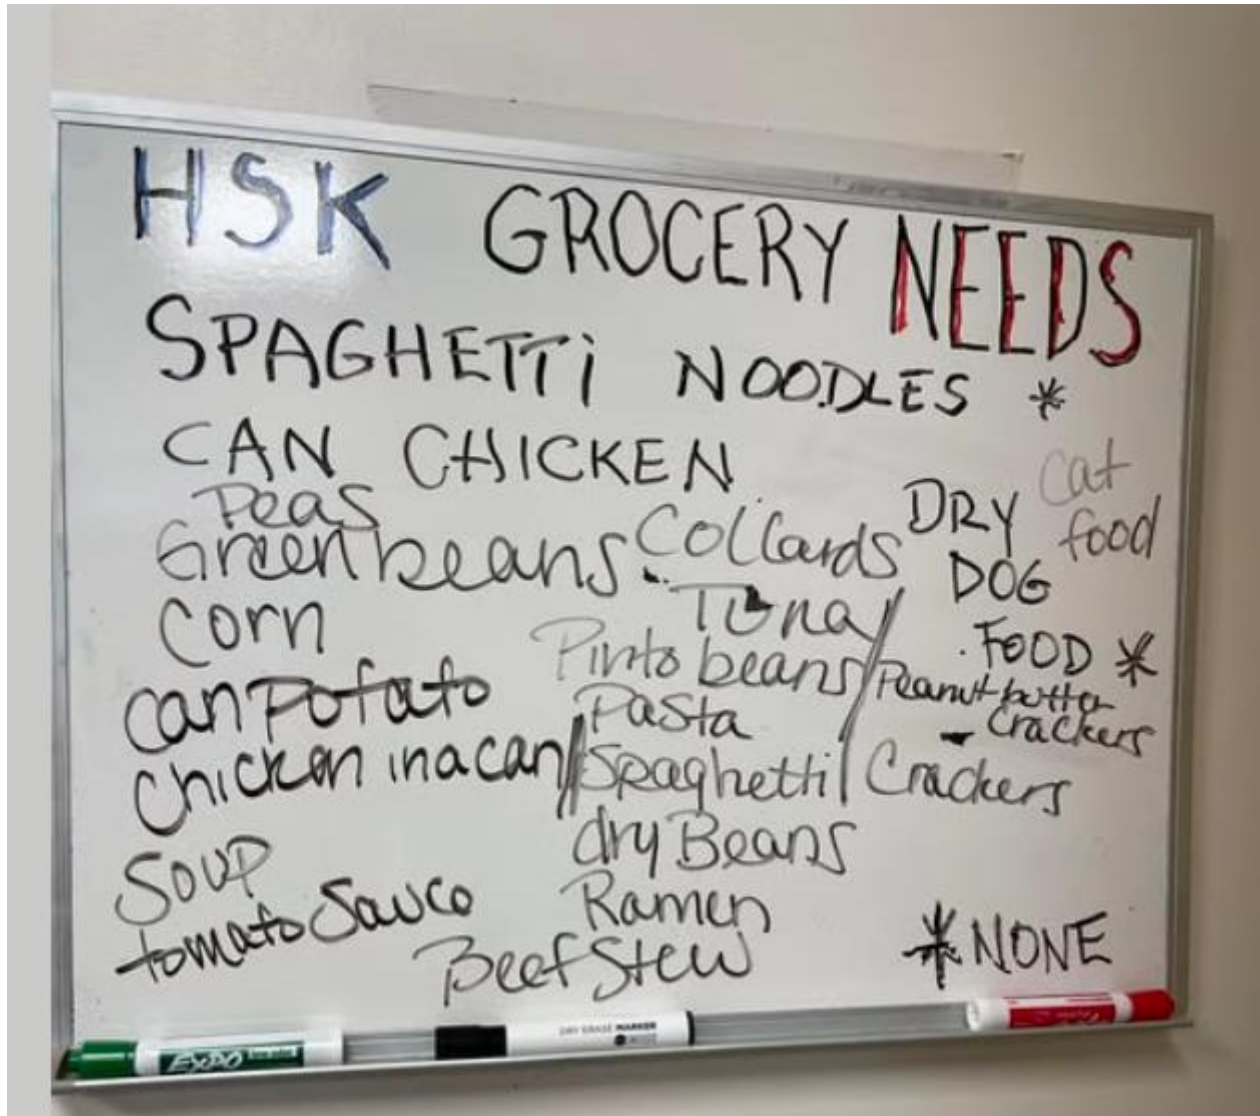 HSK GROCERY NEEDS
SPAGHETTi NOODLES *
CAN CHICKEN
Peas
Greenbeans
Corn
can potato
Chicken in a can
Soup
tomato Sauce
Collards
Tuna
Pinto beans
Pasta
Spaghetti
dry Beans
Ramen
Beef Stew
DRY
DOG
FOOD *
Cat
food
Peanut butter
crackers
Crackers
* NONE
EXPO
DRY ERASE MARKER